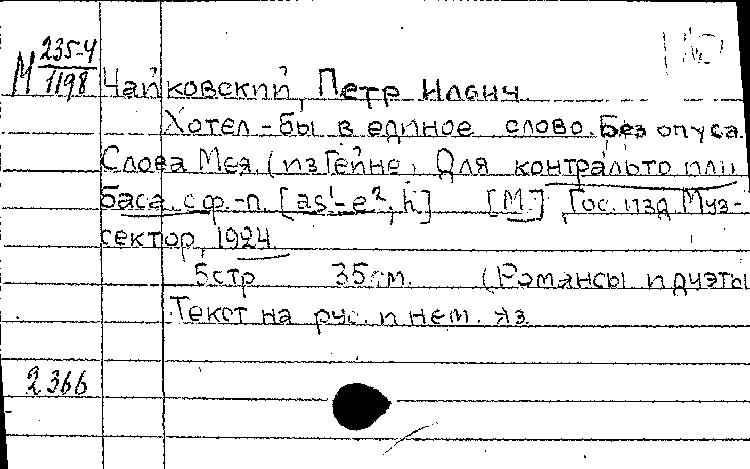 М 235-4
1198
Чайковский, Петр Ильич
Хотел-бы в единое слово. Без опуса.
Слова Мея. (из Гейне) Для контральто или
баса с ф.-п. [as¹-e², h] [М.] Гос. изд. Муз-
сектор, 1924.
5стр 35см. (Романсы и дуэты
Текст на рус. и нем. яз.
2366